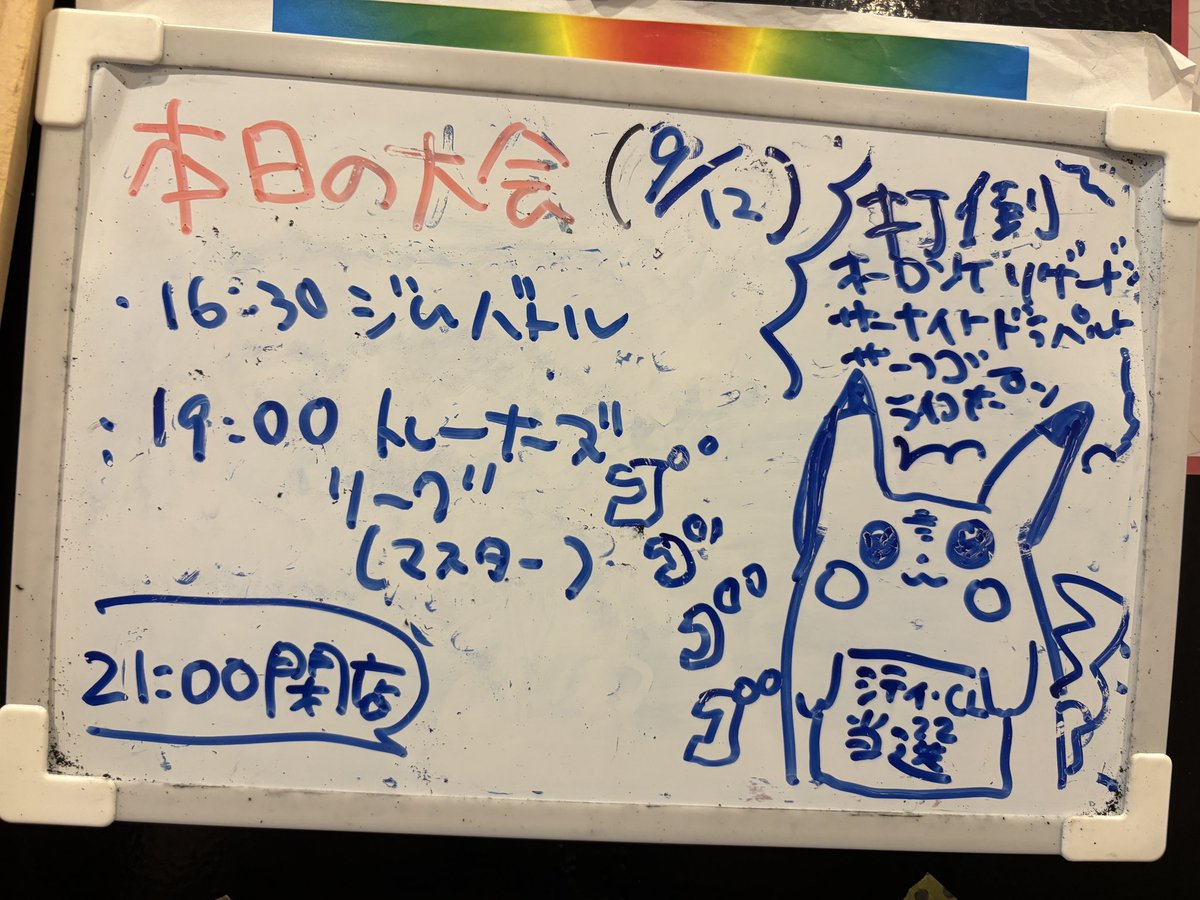 本日の大会 (9/12)
・16:30 ジムバトル
・19:00 トレーナーズ
リーグ
(マスター)
21:00 閉店
打倒
オーロンゲ リザードン
サーナイト ドラパルト
サーフゴー
ゴゴゴゴ
シティ・CL
当選